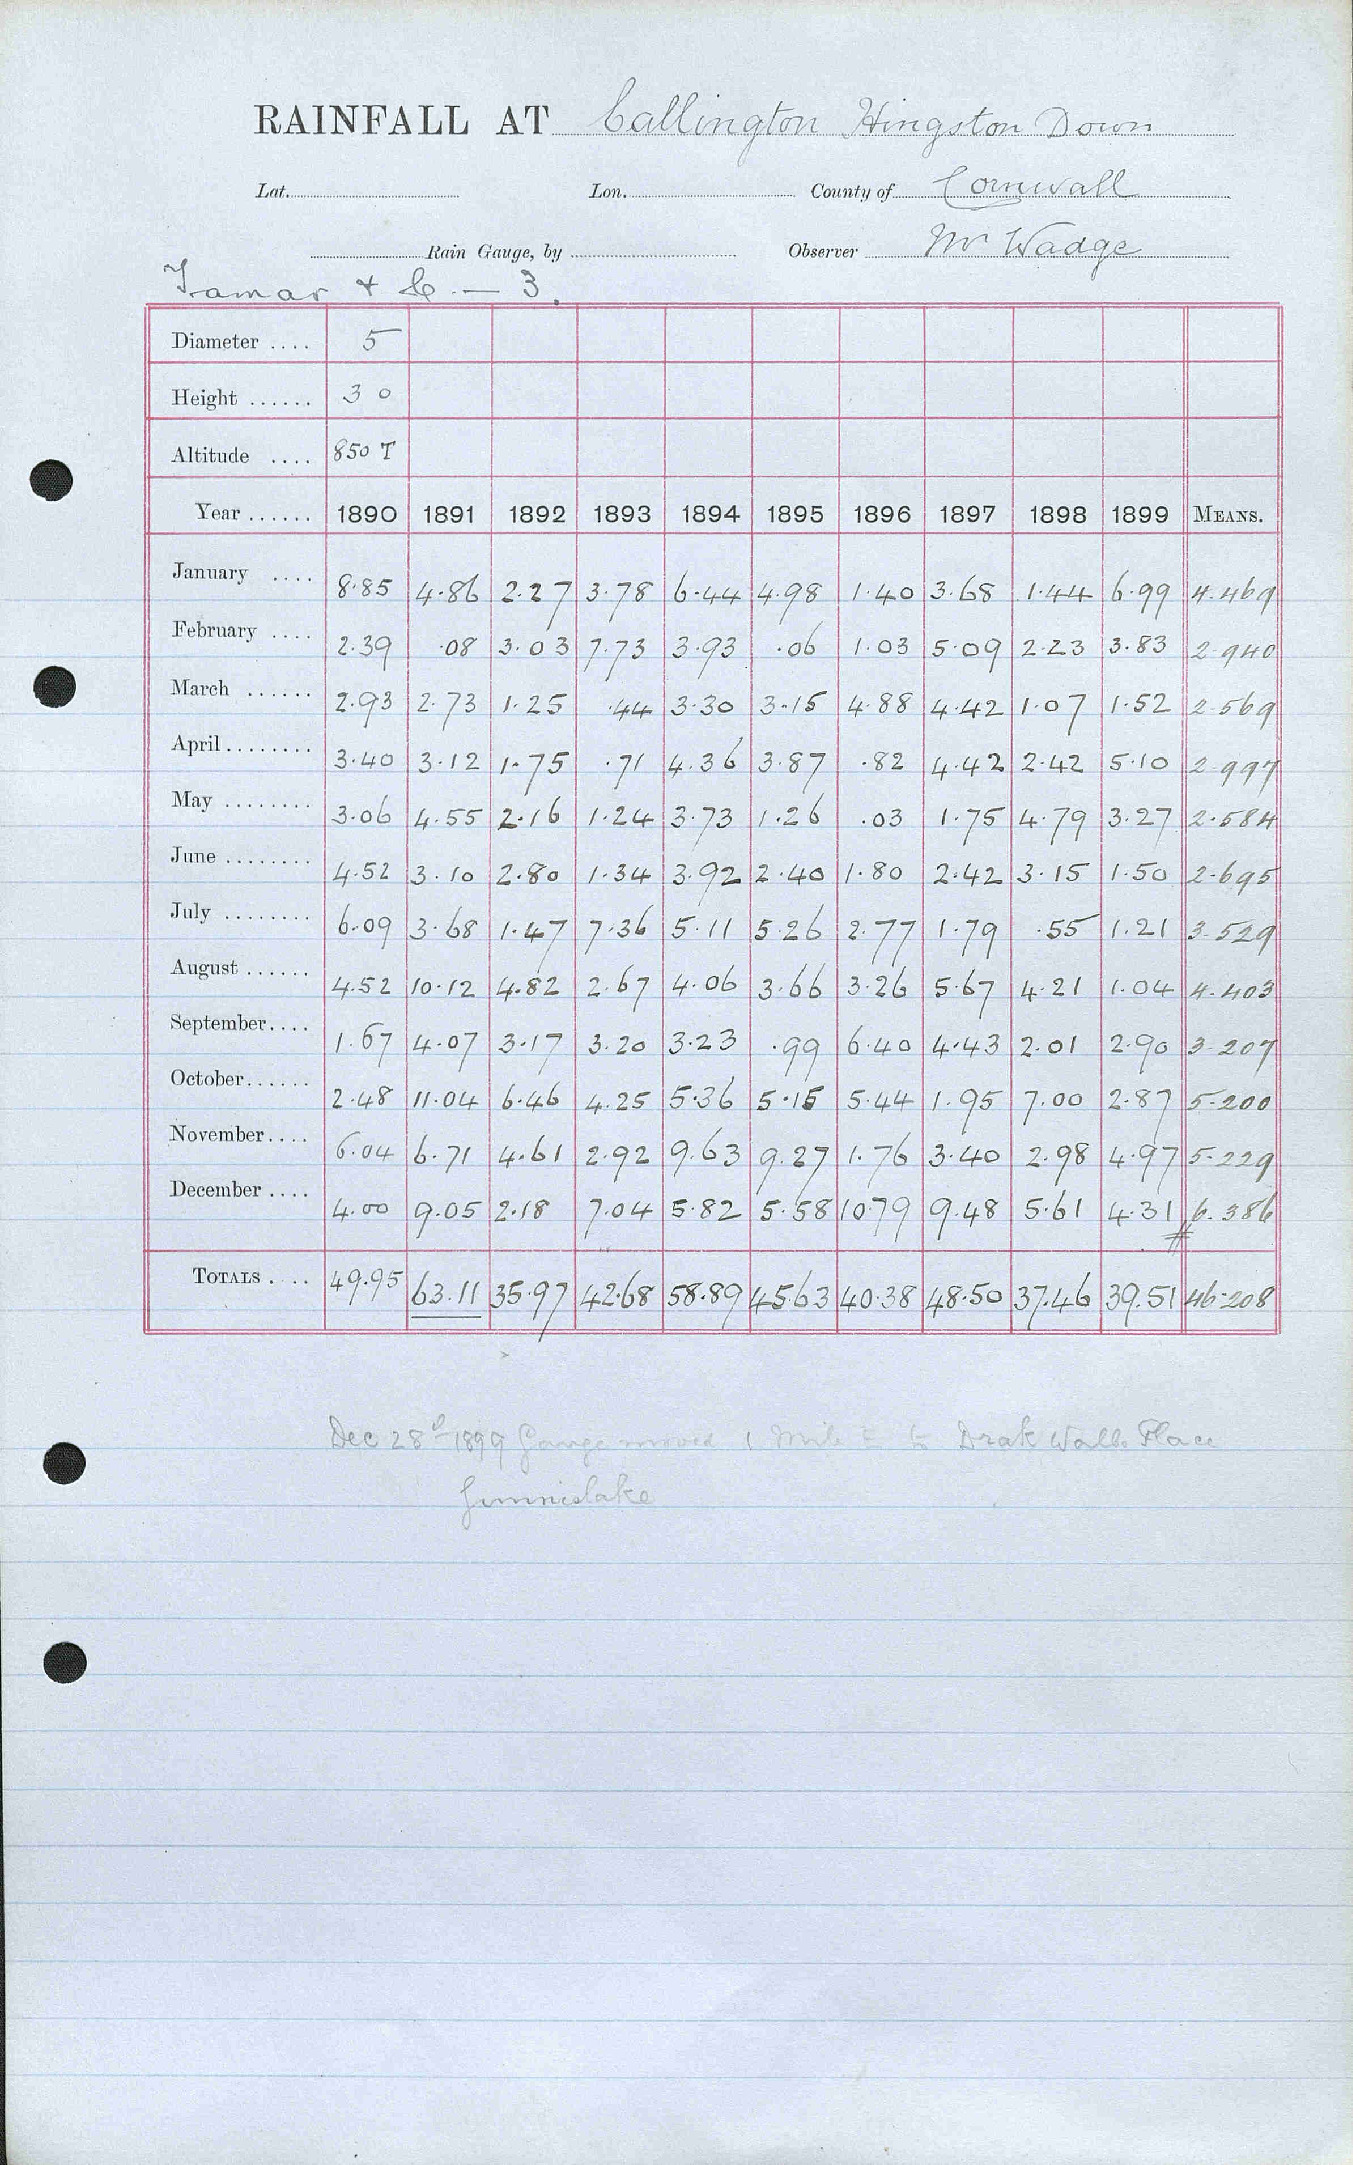 RAINFALL AT Callington Hingston Down
Lat. Lon. County of Cornwall
Rain Gauge, by Observer Mr Wadge
Tamar & C. — 3.
Diameter .... 5
Height ...... 30
Altitude .... 850 T
Year ...... 1890 1891 1892 1893 1894 1895 1896 1897 1898 1899 MEANS.
January .... 8.85 4.86 2.27 3.78 6.44 4.98 1.40 3.68 1.44 6.99 4.469
February .... 2.39 .08 3.03 7.73 3.93 .06 1.03 5.09 2.23 3.83 2.940
March ...... 2.93 2.73 1.25 .44 3.30 3.15 4.88 4.42 1.07 1.52 2.569
April ........ 3.40 3.12 1.75 .71 4.36 3.87 .82 4.42 2.42 5.10 2.997
May ........ 3.06 4.55 2.16 1.24 3.73 1.26 .03 1.75 4.79 3.27 2.584
June ........ 4.52 3.10 2.80 1.34 3.92 2.40 1.80 2.42 3.15 1.50 2.695
July ........ 6.09 3.68 1.47 7.36 5.11 5.26 2.77 1.79 .55 1.21 3.529
August ...... 4.52 10.12 4.82 2.67 4.06 3.66 3.26 5.67 4.21 1.04 4.403
September .... 1.67 4.07 3.17 3.20 3.23 .99 6.40 4.43 2.01 2.90 3.207
October ...... 2.48 11.04 6.46 4.25 5.36 5.15 5.44 1.95 7.00 2.87 5.200
November .... 6.04 6.71 4.61 2.92 9.63 9.27 1.76 3.40 2.98 4.97 5.229
December .... 4.00 9.05 2.18 7.04 5.82 5.58 10.79 9.48 5.61 4.31 6.386
TOTALS .... 49.95 63.11 35.97 42.68 58.89 45.63 40.38 48.50 37.46 39.51 46.208
Dec 28th 1899 Gauge moved 1 Mile E to Drak Walls Place
Gunnislake